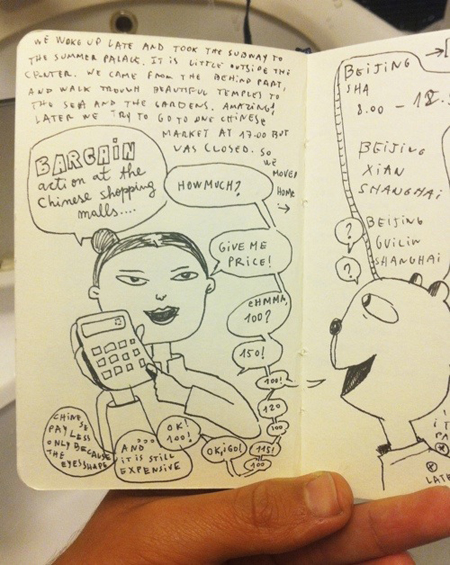 WE WOKE UP LATE AND TOOK THE SUBWAY TO
THE SUMMER PALACE. IT IS LITTLE OUTSIDE THE
CENTER. WE CAME FROM THE BEHIND PART,
AND WALK TROUGH BEAUTIFUL TEMPLES TO
THE SEA AND THE GARDENS. AMAZING!
LATER WE TRY TO GO TO ONE CHINESE
MARKET AT 17.00 BUT
WAS CLOSED. SO
WE
MOVED
HOME
→
BARGAIN
action at the
Chinese shopping
malls....
HOW MUCH?
GIVE ME
PRICE!
CHMMA,
100?
150!
100!
120
100
115!
100
OK, iGO!
OK!
100!
AND
iT iS STiLL
EXPENSIVE
CHINESE
PAY LESS
ONLY BECAUSE
THE
EYESSHAPE
BEIJING
SHA
8.00 – 18.
BEIJING
XIAN
SHANGHAI
BEIJING
GUILIN
SHANGHAI
?
?
LATE